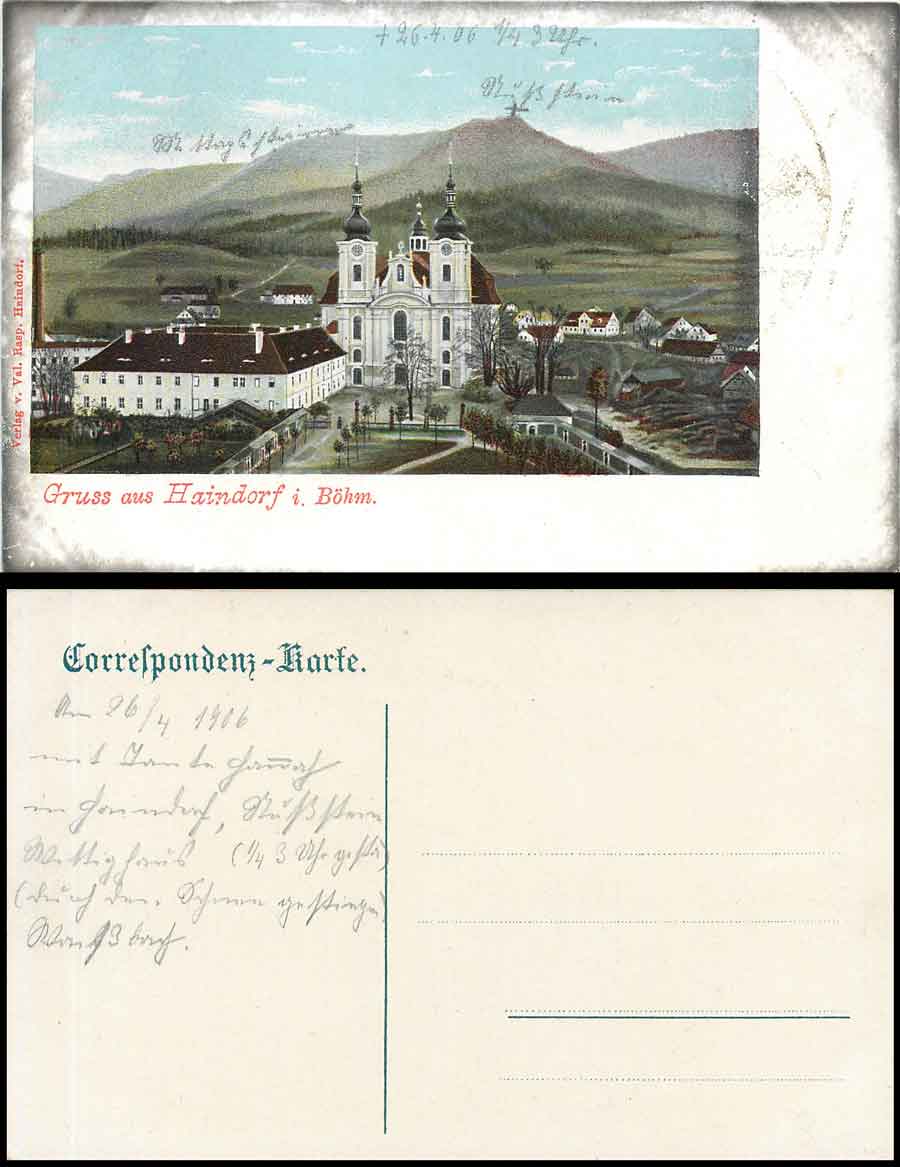 + 26.4.06 1/4 3 Uhr.
Nußstein
Mittagsteine
Verlag v. Val. Rasp. Haindorf.
Gruss aus Haindorf i. Böhm.
Correſpondenz-Karte.
Am 26/4 1906
mit Tante Hannah
in Haindorf, Nußstein
Wittighaus (1/4 3 Uhr
(durch den Schnee
Weißbach.